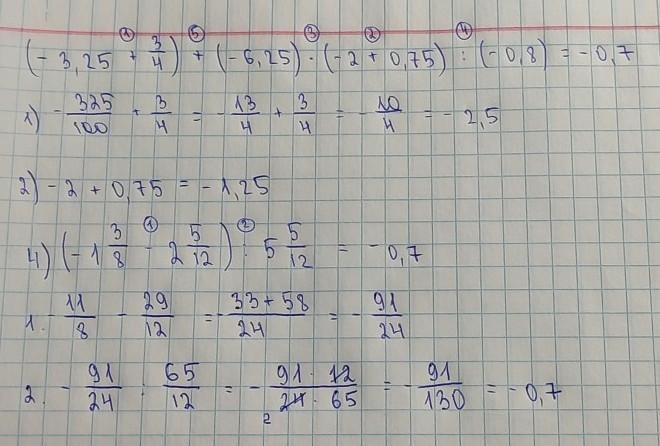 (- 3,25 + 3/4) + (-6,25) · (-2 + 0,75) : (-0,8) = -0,7
1) - 325/100 + 3/4 = - 13/4 + 3/4 = - 10/4 = - 2,5
2) - 2 + 0,75 = - 1,25
4) (- 1 3/8 - 2 5/12) : 5 5/12 = - 0,7
1. - 11/8 - 29/12 = - 33 + 58/24 = - 91/24
2. - 91/24 : 65/12 = - 91 · 12/24 · 65 = - 91/130 = - 0,7
2